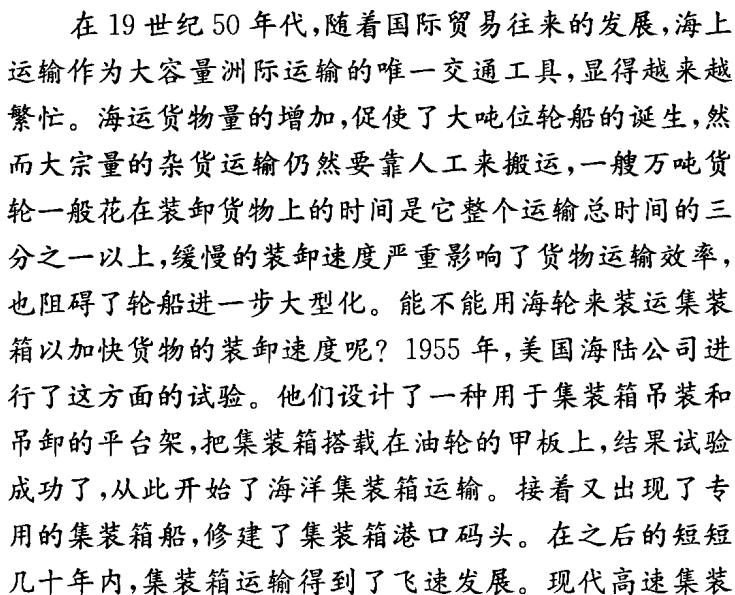 在 19 世纪 50 年代,随着国际贸易往来的发展,海上
运输作为大容量洲际运输的唯一交通工具,显得越来越
繁忙。海运货物量的增加,促使了大吨位轮船的诞生,然
而大宗量的杂货运输仍然要靠人工来搬运,一艘万吨货
轮一般花在装卸货物上的时间是它整个运输总时间的三
分之一以上,缓慢的装卸速度严重影响了货物运输效率,
也阻碍了轮船进一步大型化。能不能用海轮来装运集装
箱以加快货物的装卸速度呢? 1955 年,美国海陆公司进
行了这方面的试验。他们设计了一种用于集装箱吊装和
吊卸的平台架,把集装箱搭载在油轮的甲板上,结果试验
成功了,从此开始了海洋集装箱运输。接着又出现了专
用的集装箱船,修建了集装箱港口码头。在之后的短短
几十年内,集装箱运输得到了飞速发展。现代高速集装